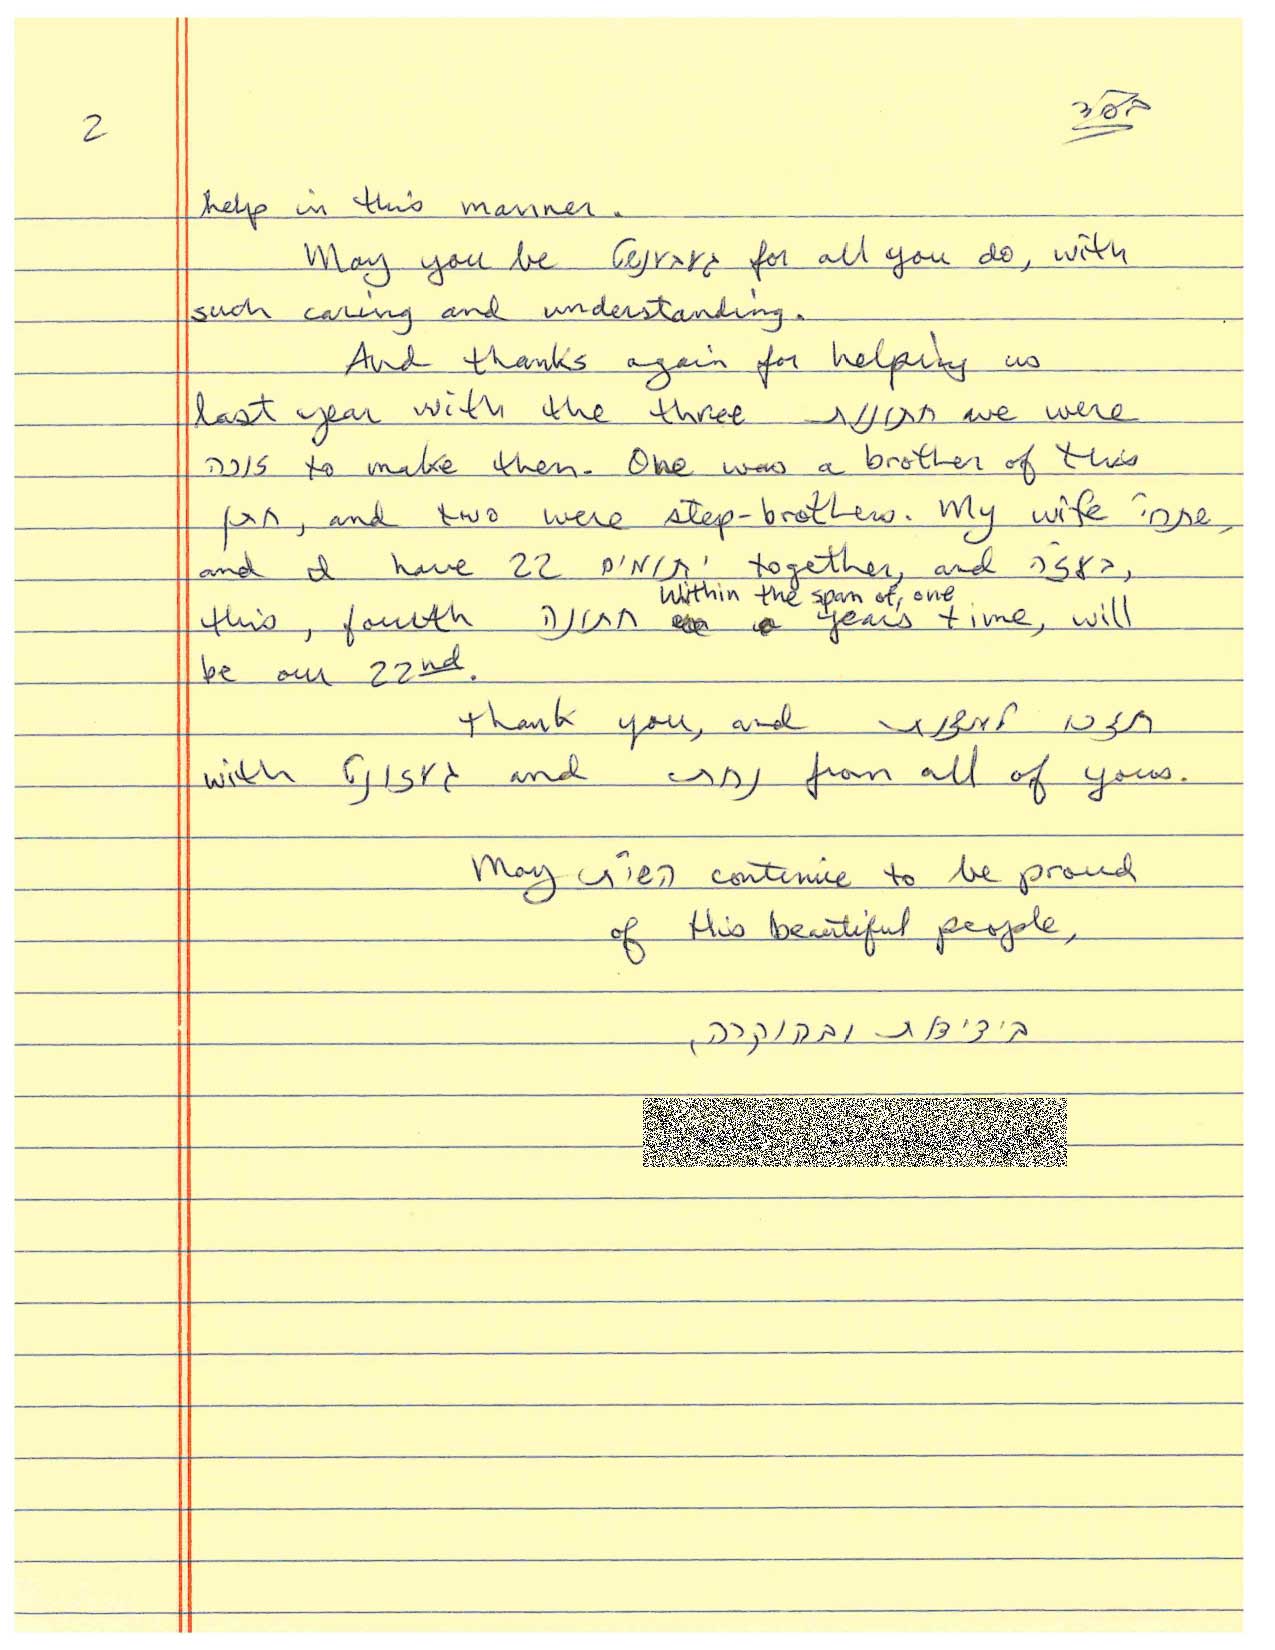 בס"ד
2
help in this manner.
May you be געבענשט for all you do, with
such caring and understanding.
And thanks again for helping us
last year with the three חתונות we were
זוכה to make then. One was a brother of this
חתן, and two were step-brothers. My wife שתחי',
and I have 22 יתומים together, and בעזה"י,
this, fourth חתונה within the span of, one years time, will
be our 22nd.
Thank you, and תזכו למצוות
with געזונט and נחת from all of yours.
May השי"ת continue to be proud
of His beautiful people,
בידידות ובהוקרה,